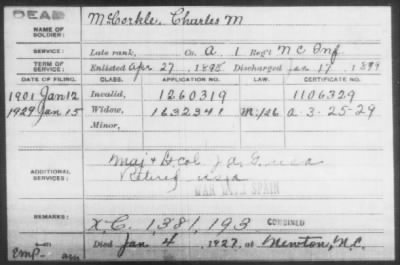 DEAD
NAME OF SOLDIER: McCorkle, Charles M
SERVICE: Late rank, Co. A. 1 Reg't N C Inf
TERM OF SERVICE: Enlisted Apr 27 1898 Discharged Jan 17 1899
DATE OF FILING. CLASS. APPLICATION NO. LAW. CERTIFICATE NO.
1901 Jan 12 Invalid, 1260319 1106329
1929 Jan 15 Widow, 1632341 a-3-25-29
Minor,
ADDITIONAL SERVICES: Maj & Lt Col J.A.G. USA
Retired USA
WAR WITH SPAIN
REMARKS: X.C. 1,381,193 COMBINED
Died Jan 4, 192 at Newton, N.C.